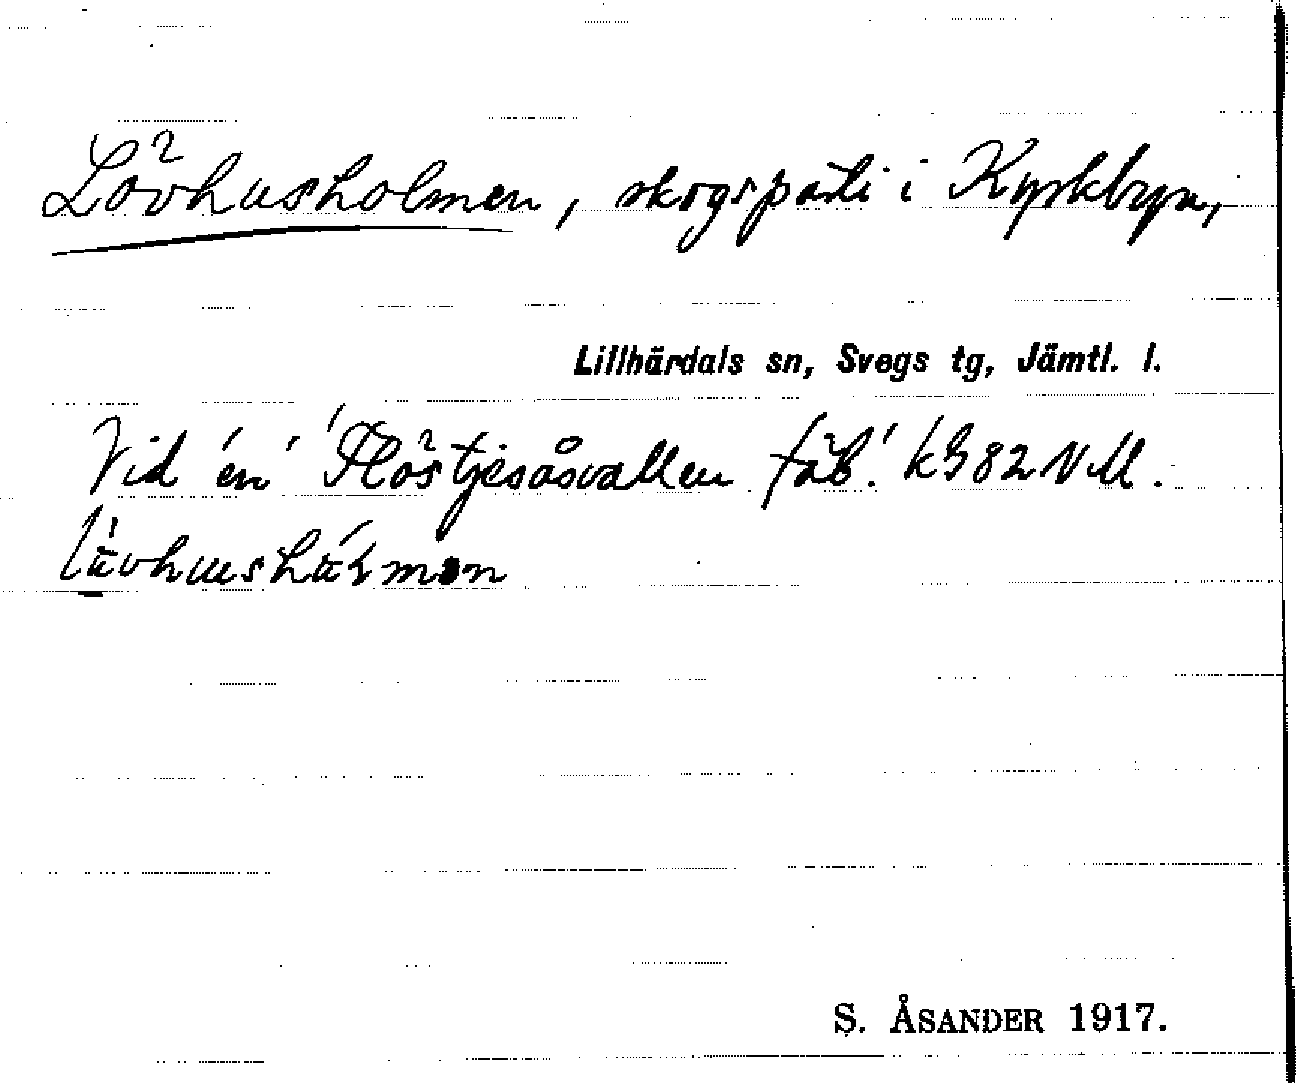 Lövhusholmen, skogsparti i Kyrkbyn,
Lillhärdals sn, Svegs tg, Jämtl. l.
Vid 'en' 'Flöstjesåsvallen fäb.' k G 82 NM.
lävhushármen
S. ÅSANDER 1917.